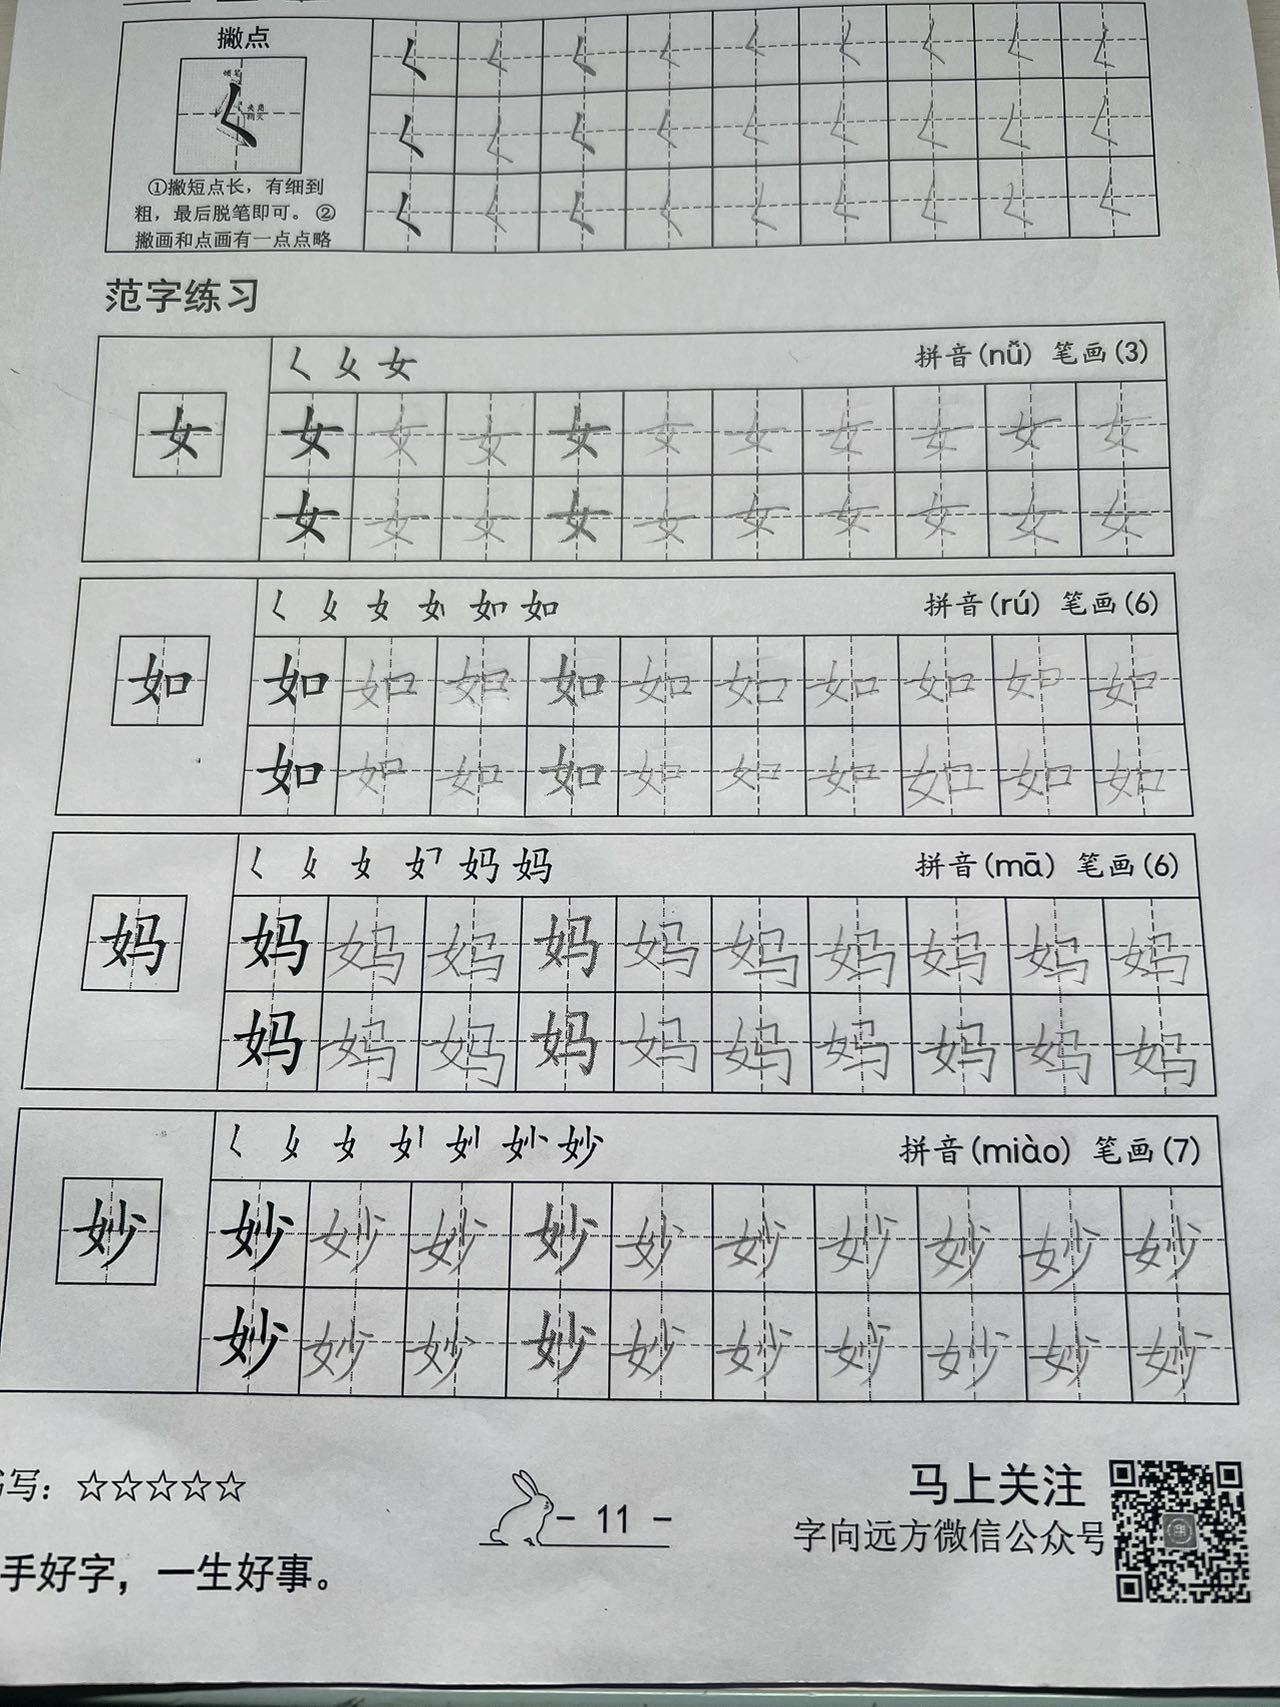 撇点
①撇短点长，有细到
粗，最后脱笔即可。②
撇画和点画有一点点略
范字练习
女 拼音(nǚ) 笔画(3)
女 女 女 女 女 女 女 女 女 女 女
女 女 女 女 女 女 女 女 女 女
如 如 拼音(rú) 笔画(6)
如 如 如 如 如 如 如 如 如 如 如
如 如 如 如 如 如 如 如 如 如
女 妈 妈 拼音(mā) 笔画(6)
妈 妈 妈 妈 妈 妈 妈 妈 妈 妈 妈
妈 妈 妈 妈 妈 妈 妈 妈 妈 妈
女 妙 拼音(miào) 笔画(7)
妙 妙 妙 妙 妙 妙 妙 妙 妙 妙 妙
妙 妙 妙 妙 妙 妙 妙 妙 妙 妙
写：☆☆☆☆☆
- 11 -
马上关注
字向远方微信公众号
手好字，一生好事。